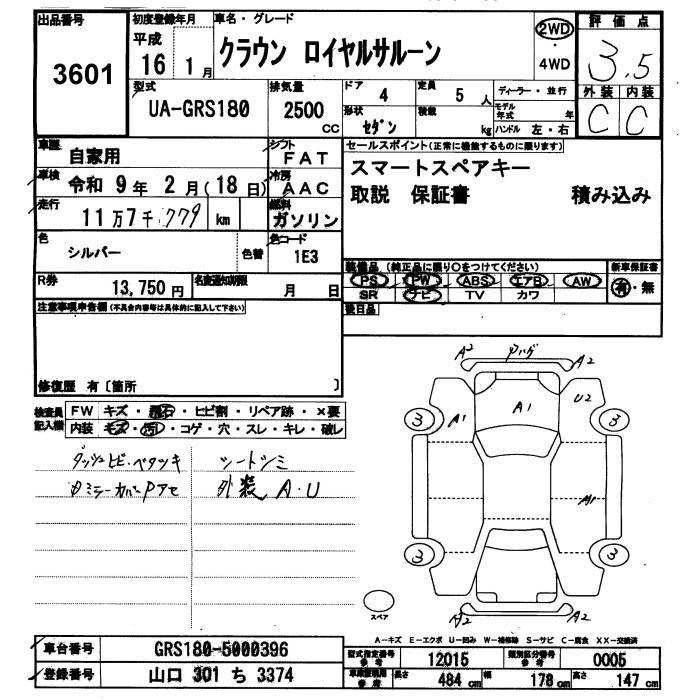 出品番号
3601
初度登録年月
平成
16 年 1 月
車名・グレード
クラウン ロイヤルサルーン
2WD
・
4WD
評価点
3.5
外装 内装
C C
型式
UA-GRS180
排気量
2500
CC
ドア
4
定員
5 人
形状
セダン
積載
kg
ディーラー・並行
モデル年式 年
ハンドル 左・右
車歴
自家用
シフト
FAT
車検
令和 9 年 2 月 (18 日)
冷房
AAC
走行
11 万 7 千 779 km
燃料
ガソリン
色
シルバー
色替
色コード
1E3
R券
13,750 円
名変通知期限
月 日
セールスポイント(正常に機能するものに限ります)
スマートスペアキー
取説 保証書 積み込み
装備品 (純正品に限り○をつけてください)
PS PW ABS エアB AW
SR ナビ TV カワ
新車保証書
有・無
後日品
注意事項申告欄(不具合内容等は具体的に記入して下さい)
修復歴 有〔箇所 〕
検査員記入欄
FW キズ・飛石・ヒビ割・リペア跡・×要
内装 キズ・汚れ・コゲ・穴・スレ・キレ・破レ
ダッシュヒビ・ベタツキ
シートシミ
ミラーカバーPアセ
外装 A・U
A2 A2
A1 A1 U2
3 3
A1
3 3
A2 A2
スペア
A-キズ E-エクボ U-凹み W-補修跡 S-サビ C-腐食 XX-交換済
車台番号
GRS180-5000396
登録番号
山口 301 ち 3374
型式指定番号
参考
12015
類別区分番号
参考
0005
参考
長さ
484 cm
幅
178 cm
高さ
147 cm